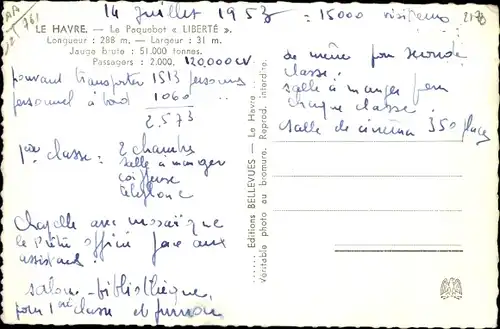 14 Juillet 1953 = 15000 visiteurs
LE HAVRE. — Le Paquebot « LIBERTÉ ».
Longueur : 288 m. — Largeur : 31 m.
Jauge brute : 51.000 tonnes.
Passagers : 2.000. 120,000 CV
pouvant transporter 1513 personnes
personnel à bord 1060
2.573
1ère classe : 2 chambres
salle à manger
coiffeuse
téléphone
chapelle avec mosaïque
le Prêtre officie face aux
assistants.
salon-bibliothèque
pour 1ère classe et
de même pour seconde
classe.
salle à manger pour
chaque classe.
salle de cinéma 350 places
Editions BELLEVUES — Le Havre
Véritable photo au bromure. Reprod. interdite.